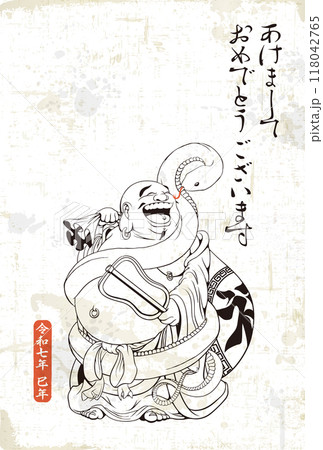 あけまして
おめでとうございます
令和七年 巳年
118042765